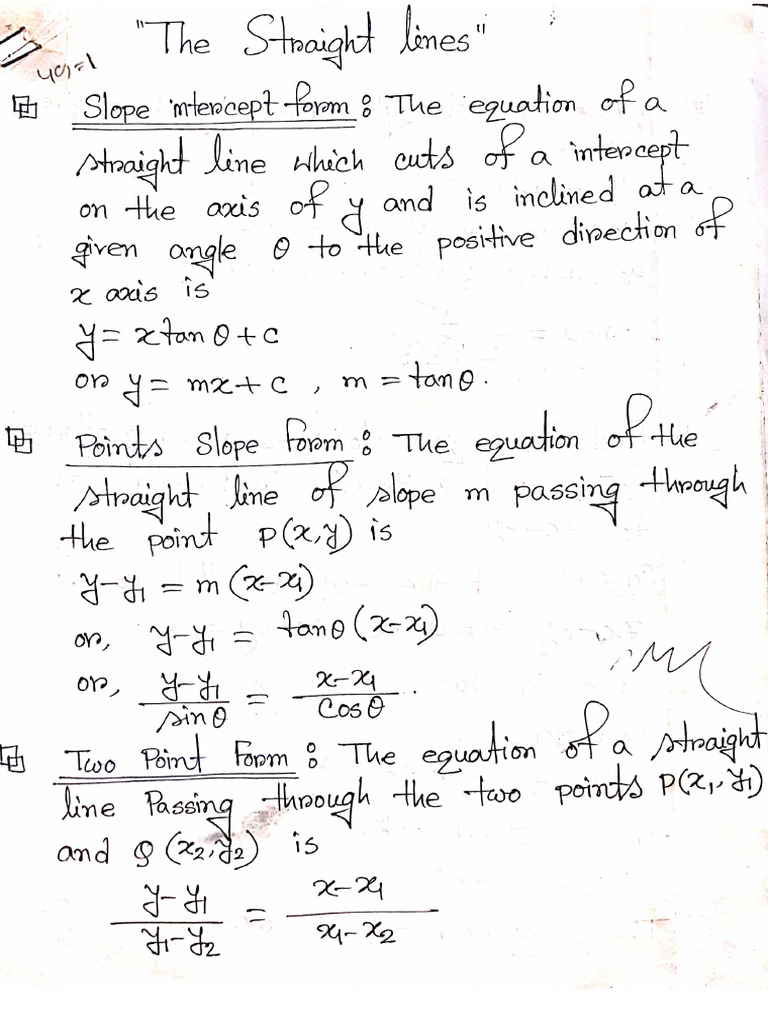 "The Straight lines"
Slope intercept form : The equation of a
straight line which cuts of a intercept
on the axis of y and is inclined at a
given angle θ to the positive direction of
x axis is
y = x tan θ + c
or y = mx + c , m = tan θ.
Points Slope form : The equation of the
straight line of slope m passing through
the point P(x,y) is
y-y₁ = m (x-x₁)
or, y-y₁ = tan θ (x-x₁)
or, (y-y₁)/(sin θ) = (x-x₁)/(cos θ).
Two Point Form : The equation of a straight
line Passing through the two points P(x₁,y₁)
and Q (x₂,y₂) is
(y-y₁)/(y₁-y₂) = (x-x₁)/(x₁-x₂)